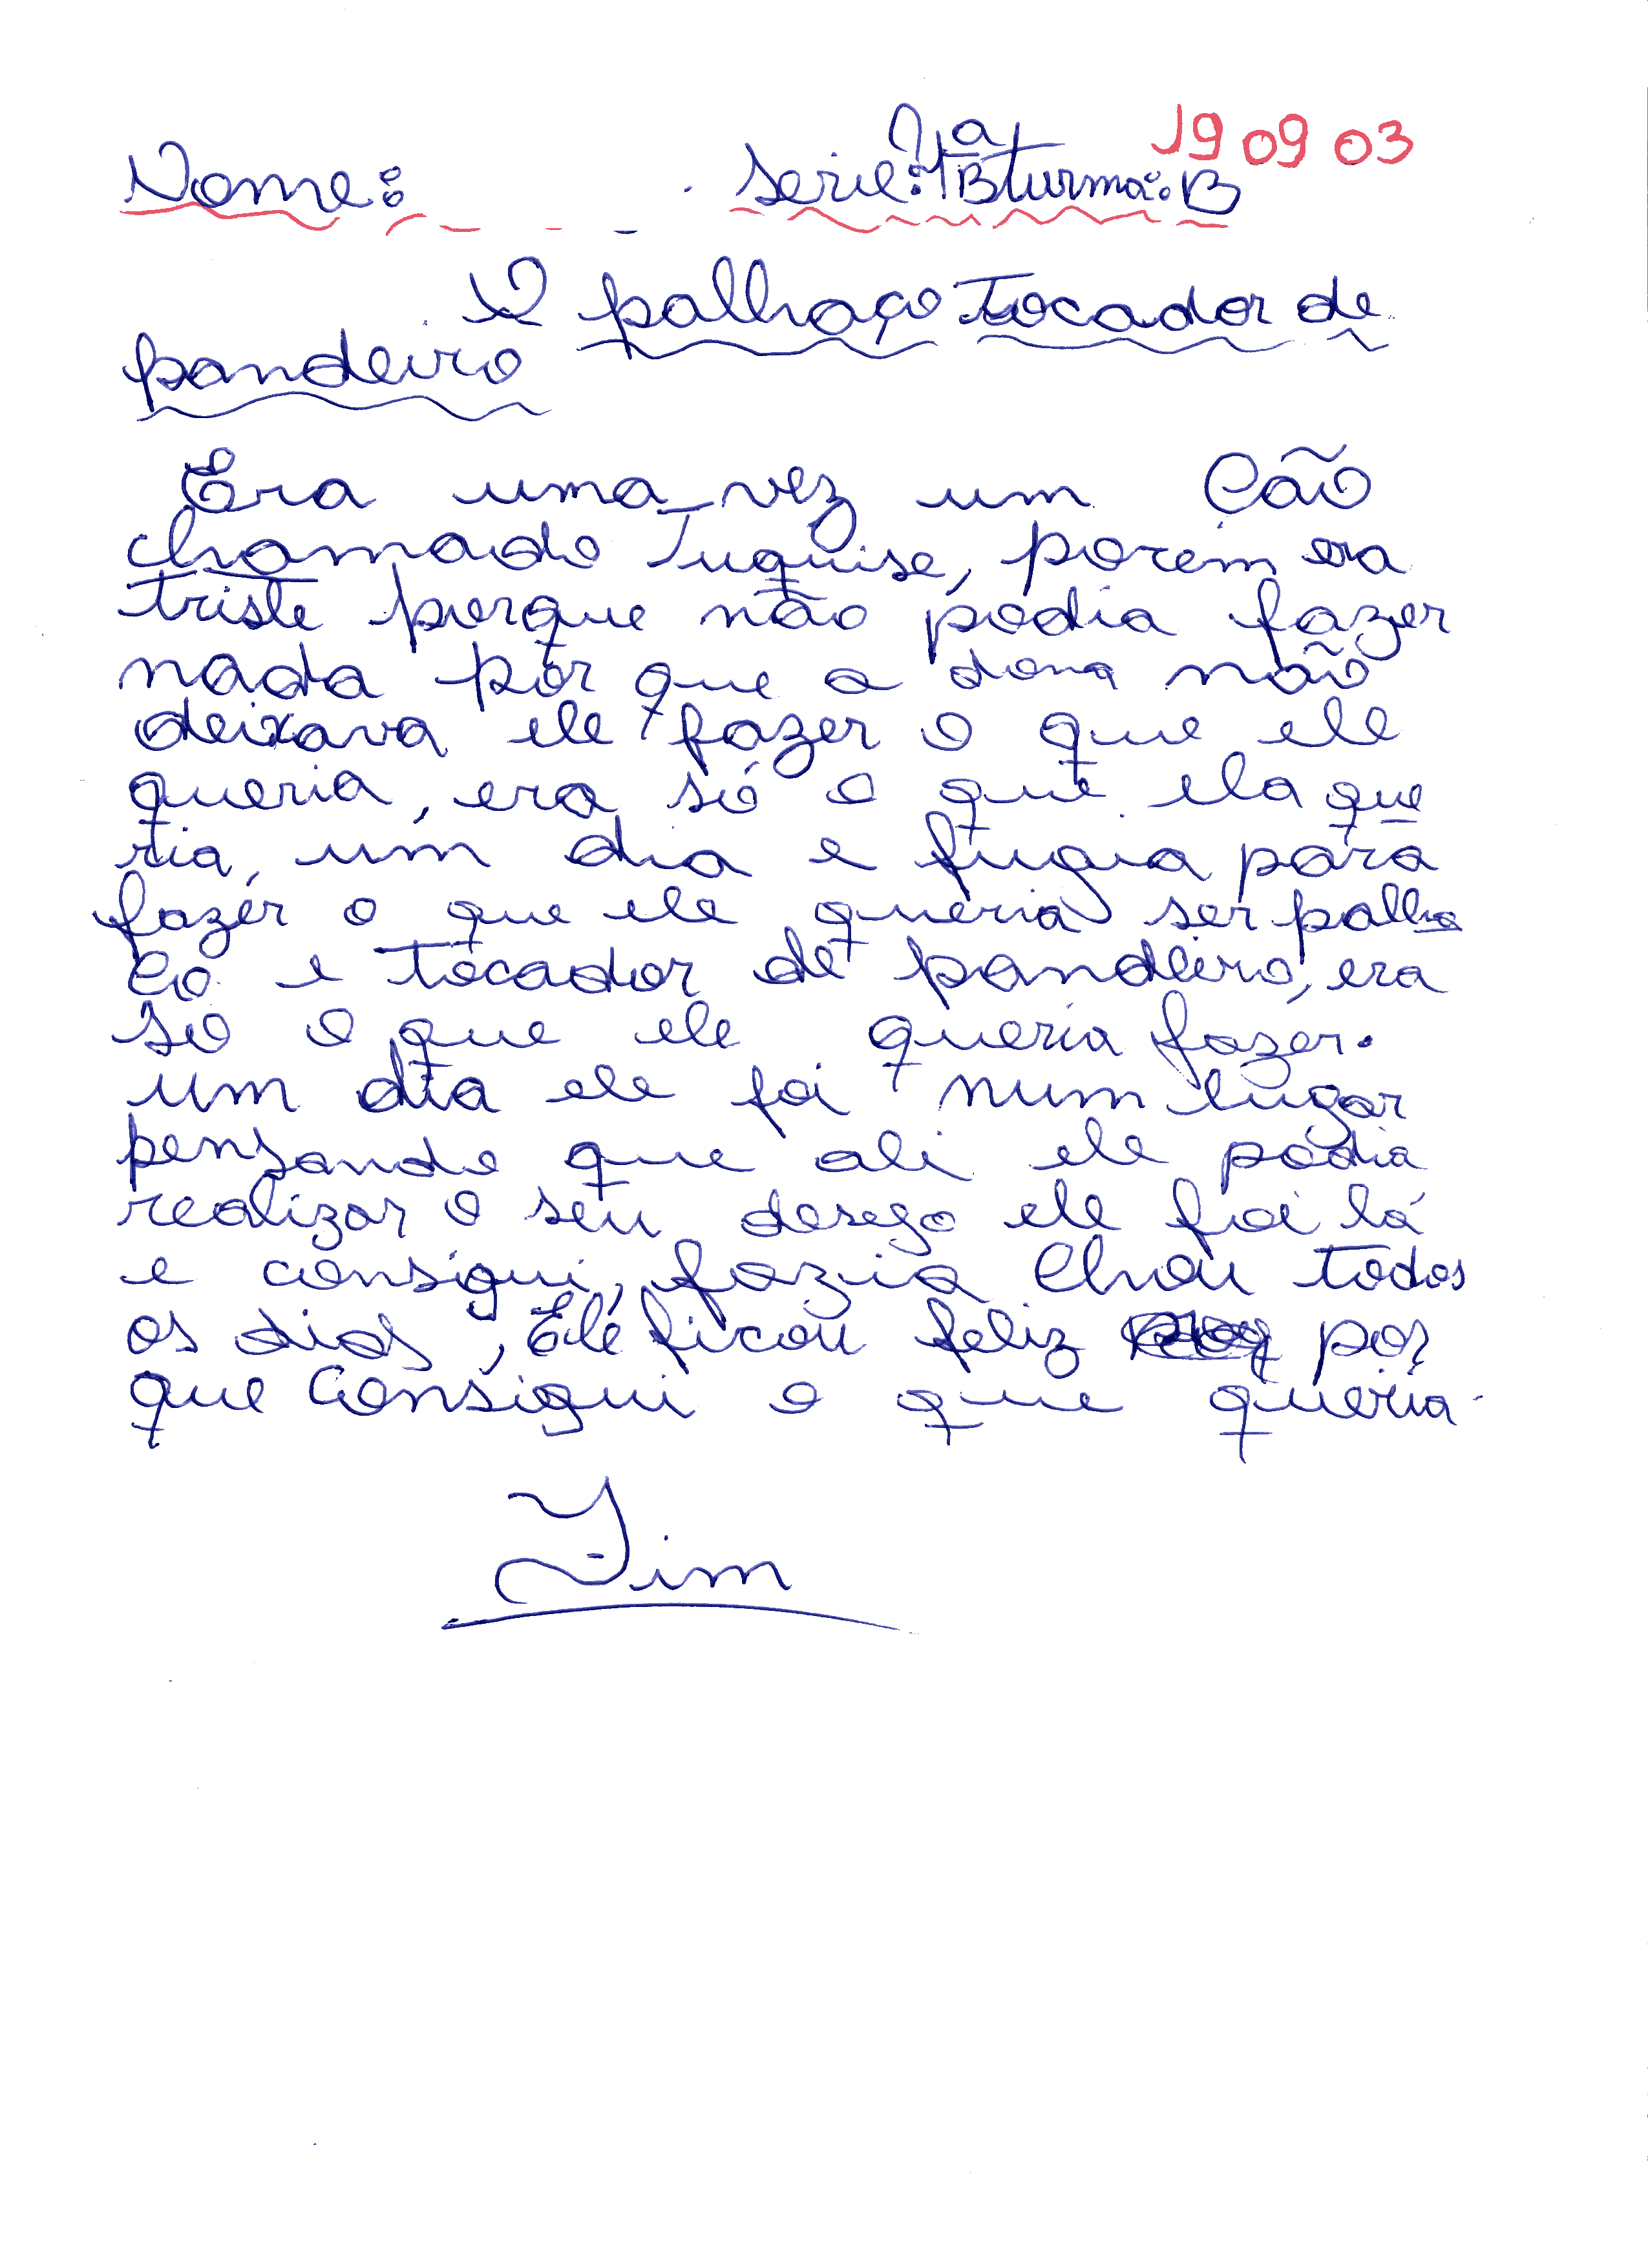 Nome: serie: 1ª B turma: B 19 09 03
O palhaço tocador de
pandeiro
Era uma vez um Cão
chamado Tuquise, porem era
triste porque não podia fazer
nada por que a dona não
deixava ele fazer o que ele
queria, era só o que ela que
ria, um dia e fugia para
fazer o que ele queria ser palha
co e tocador de pandeiro, era
só o que ele queria fazer.
um dia ele foi num lugar
penzando que ali ele podia
realizar o seu desego ele foi lá
e consigui, fazia Chou todos
os dias, Ele ficou feliz por
que Consigui o que queria.
Fim